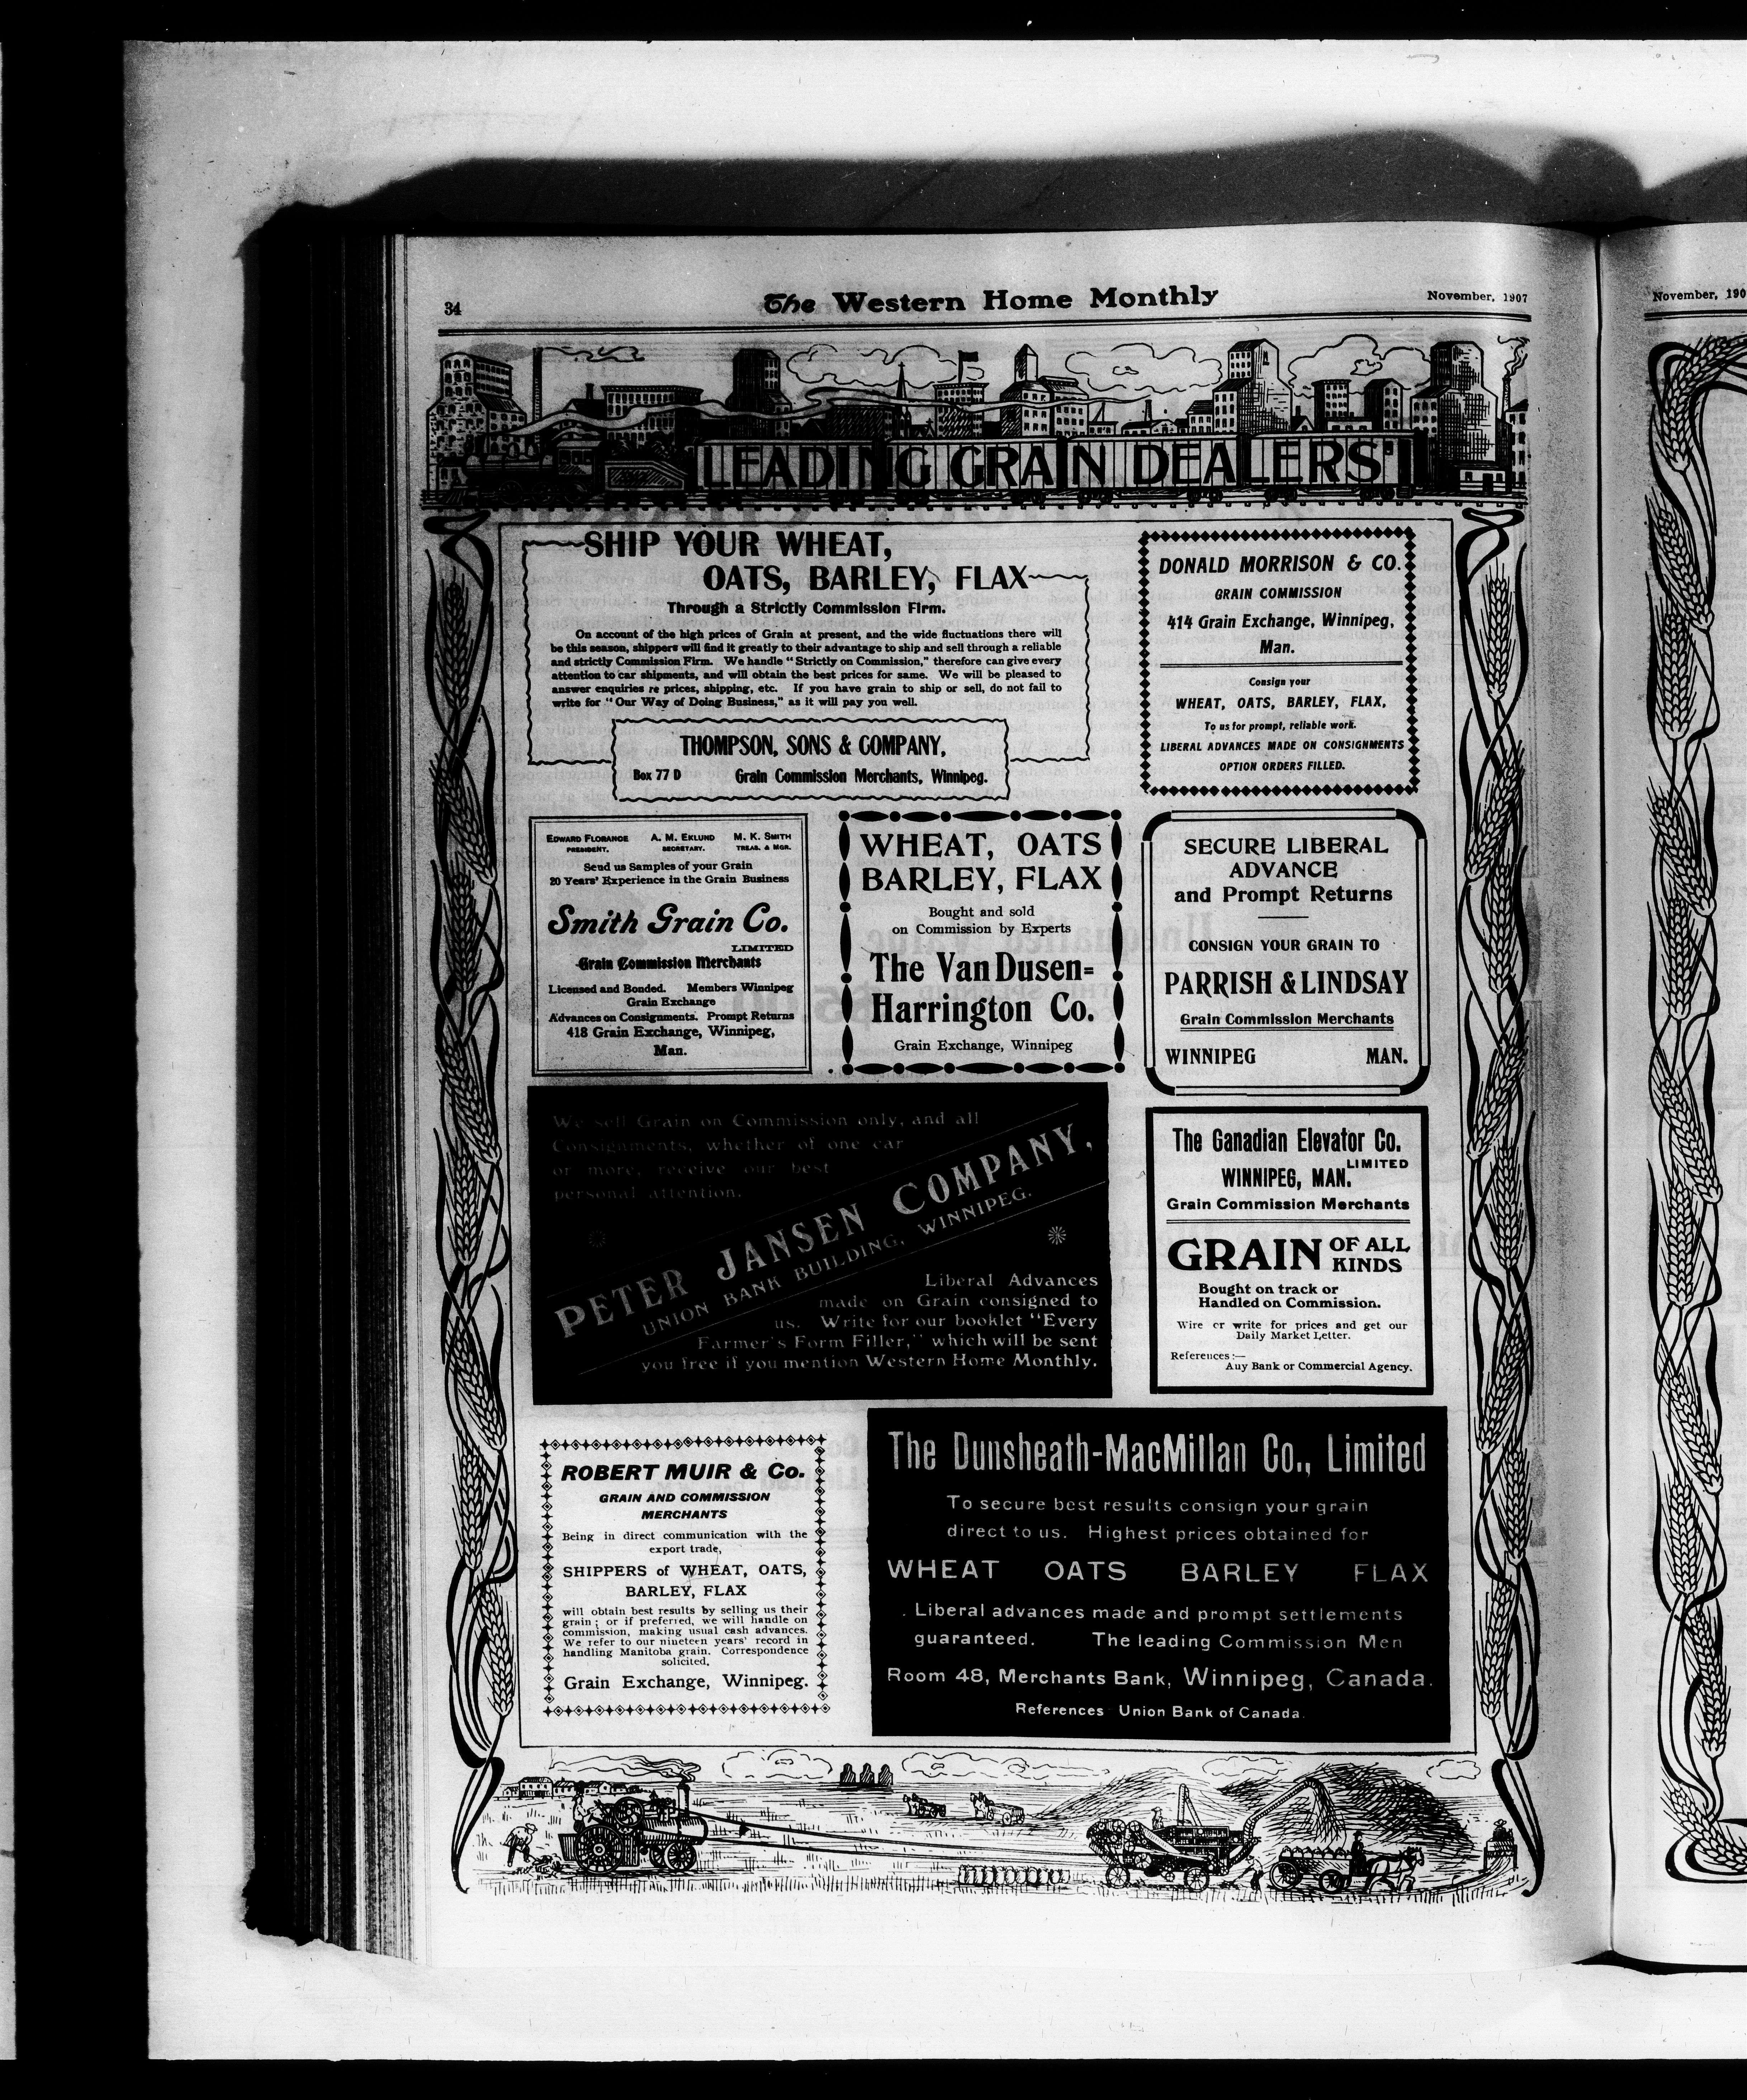 34
The Western Home Monthly
November, 1907
LEADING GRAIN DEALERS
SHIP YOUR WHEAT,
OATS, BARLEY, FLAX
Through a Strictly Commission Firm.
On account of the high prices of Grain at present, and the wide fluctuations there will
be this season, shippers will find it greatly to their advantage to ship and sell through a reliable
and strictly Commission Firm. We handle "Strictly on Commission," therefore can give every
attention to car shipments, and will obtain the best prices for same. We will be pleased to
answer enquiries re prices, shipping, etc. If you have grain to ship or sell, do not fail to
write for "Our Way of Doing Business," as it will pay you well.
THOMPSON, SONS & COMPANY,
Box 77 D Grain Commission Merchants, Winnipeg.
DONALD MORRISON & CO.
GRAIN COMMISSION
414 Grain Exchange, Winnipeg,
Man.
Consign your
WHEAT, OATS, BARLEY, FLAX,
To us for prompt, reliable work.
LIBERAL ADVANCES MADE ON CONSIGNMENTS
OPTION ORDERS FILLED.
EDWARD FLORANCE A. M. EKLUND M. K. SMITH
PRESIDENT. SECRETARY. TREAS. & MGR.
Send us Samples of your Grain
20 Years' Experience in the Grain Business
Smith Grain Co.
LIMITED
Grain Commission Merchants
Licensed and Bonded. Members Winnipeg
Grain Exchange
Advances on Consignments. Prompt Returns
418 Grain Exchange, Winnipeg,
Man.
WHEAT, OATS
BARLEY, FLAX
Bought and sold
on Commission by Experts
The Van Dusen=
Harrington Co.
Grain Exchange, Winnipeg
SECURE LIBERAL
ADVANCE
and Prompt Returns
CONSIGN YOUR GRAIN TO
PARRISH & LINDSAY
Grain Commission Merchants
WINNIPEG MAN.
We sell Grain on Commission only, and all
Consignments, whether of one car
or more, receive our best
personal attention.
PETER JANSEN COMPANY,
UNION BANK BUILDING, WINNIPEG.
Liberal Advances
made on Grain consigned to
us. Write for our booklet "Every
Farmer's Form Filler," which will be sent
you free if you mention Western Home Monthly.
The Canadian Elevator Co.
LIMITED
WINNIPEG, MAN.
Grain Commission Merchants
GRAIN OF ALL
KINDS
Bought on track or
Handled on Commission.
Wire or write for prices and get our
Daily Market Letter.
References:—
Any Bank or Commercial Agency.
ROBERT MUIR & Co.
GRAIN AND COMMISSION
MERCHANTS
Being in direct communication with the
export trade,
SHIPPERS of WHEAT, OATS,
BARLEY, FLAX
will obtain best results by selling us their
grain; or if preferred, we will handle on
commission, making usual cash advances.
We refer to our nineteen years' record in
handling Manitoba grain. Correspondence
solicited.
Grain Exchange, Winnipeg.
The Dunsheath-MacMillan Co., Limited
To secure best results consign your grain
direct to us. Highest prices obtained for
WHEAT OATS BARLEY FLAX
Liberal advances made and prompt settlements
guaranteed. The leading Commission Men
Room 48, Merchants Bank, Winnipeg, Canada.
References Union Bank of Canada.
November, 190